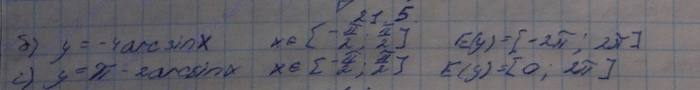 21.5
б) y = -4arcsinx x ∈ [-π/2; π/2] E(y) = [-2π; 2π]
с) y = π - 2arcsinx x ∈ [-π/2; π/2] E(y) = [0; 2π]